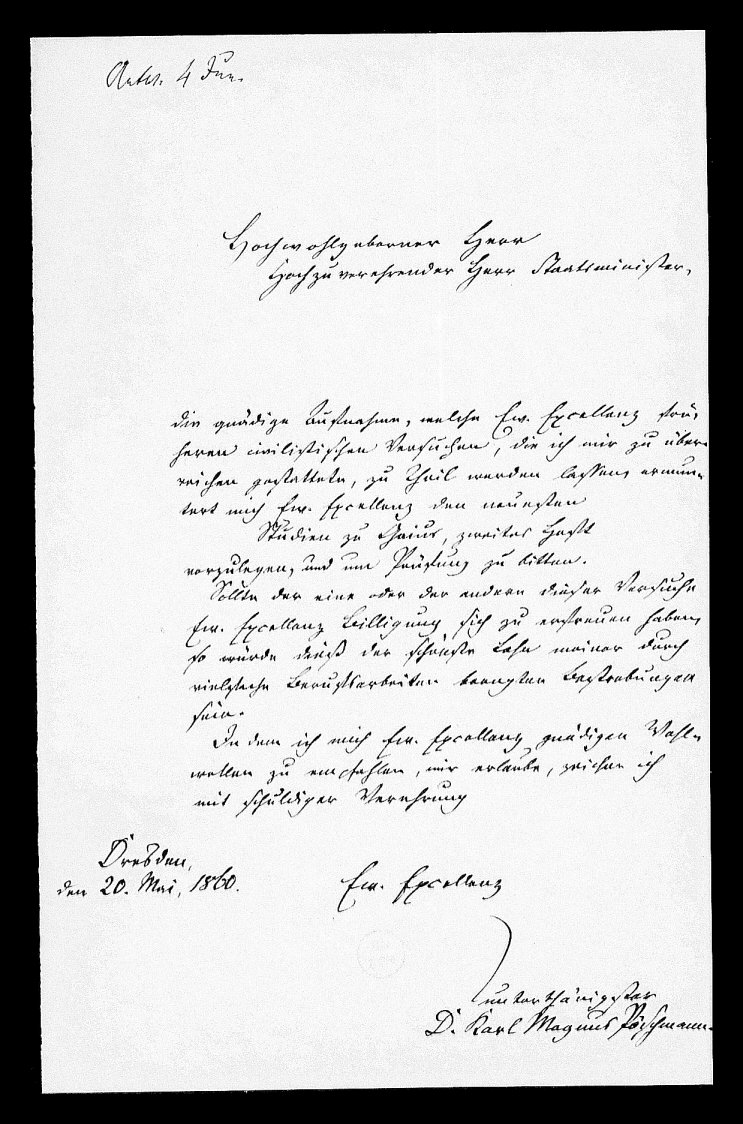 Antw. 4 Jun.
Hochwohlgeborner Herr
Hochzuverehrender Herr Staatsminister,
die gnädige Aufnahme, welche Ew. Excellenz frü-
heren civilistischen Versuchen, die ich mir zu über-
reichen gestattete, zu Theil werden lassen, ermun-
tert mich Ew. Excellenz den neuesten
Studien zu Gaius, zweites Heft
vorzulegen, und um Prüfung zu bitten.
Sollte der eine oder der andere dieser Versuche
Ew. Excellenz Billigung sich zu erfreuen haben,
so würde dieß der schönste Lohn meiner durch
vielfache Berufsarbeiten beengten Bestrebungen
sein.
In dem ich mich Ew. Excellenz gnädigen Wohl-
wollen zu empfehlen, mir erlaube, zeichne ich
mit schuldiger Verehrung
Dresden,
den 20. Mai, 1860.
Ew. Excellenz
unterthänigster
D. Karl Magnus Pöschmann.